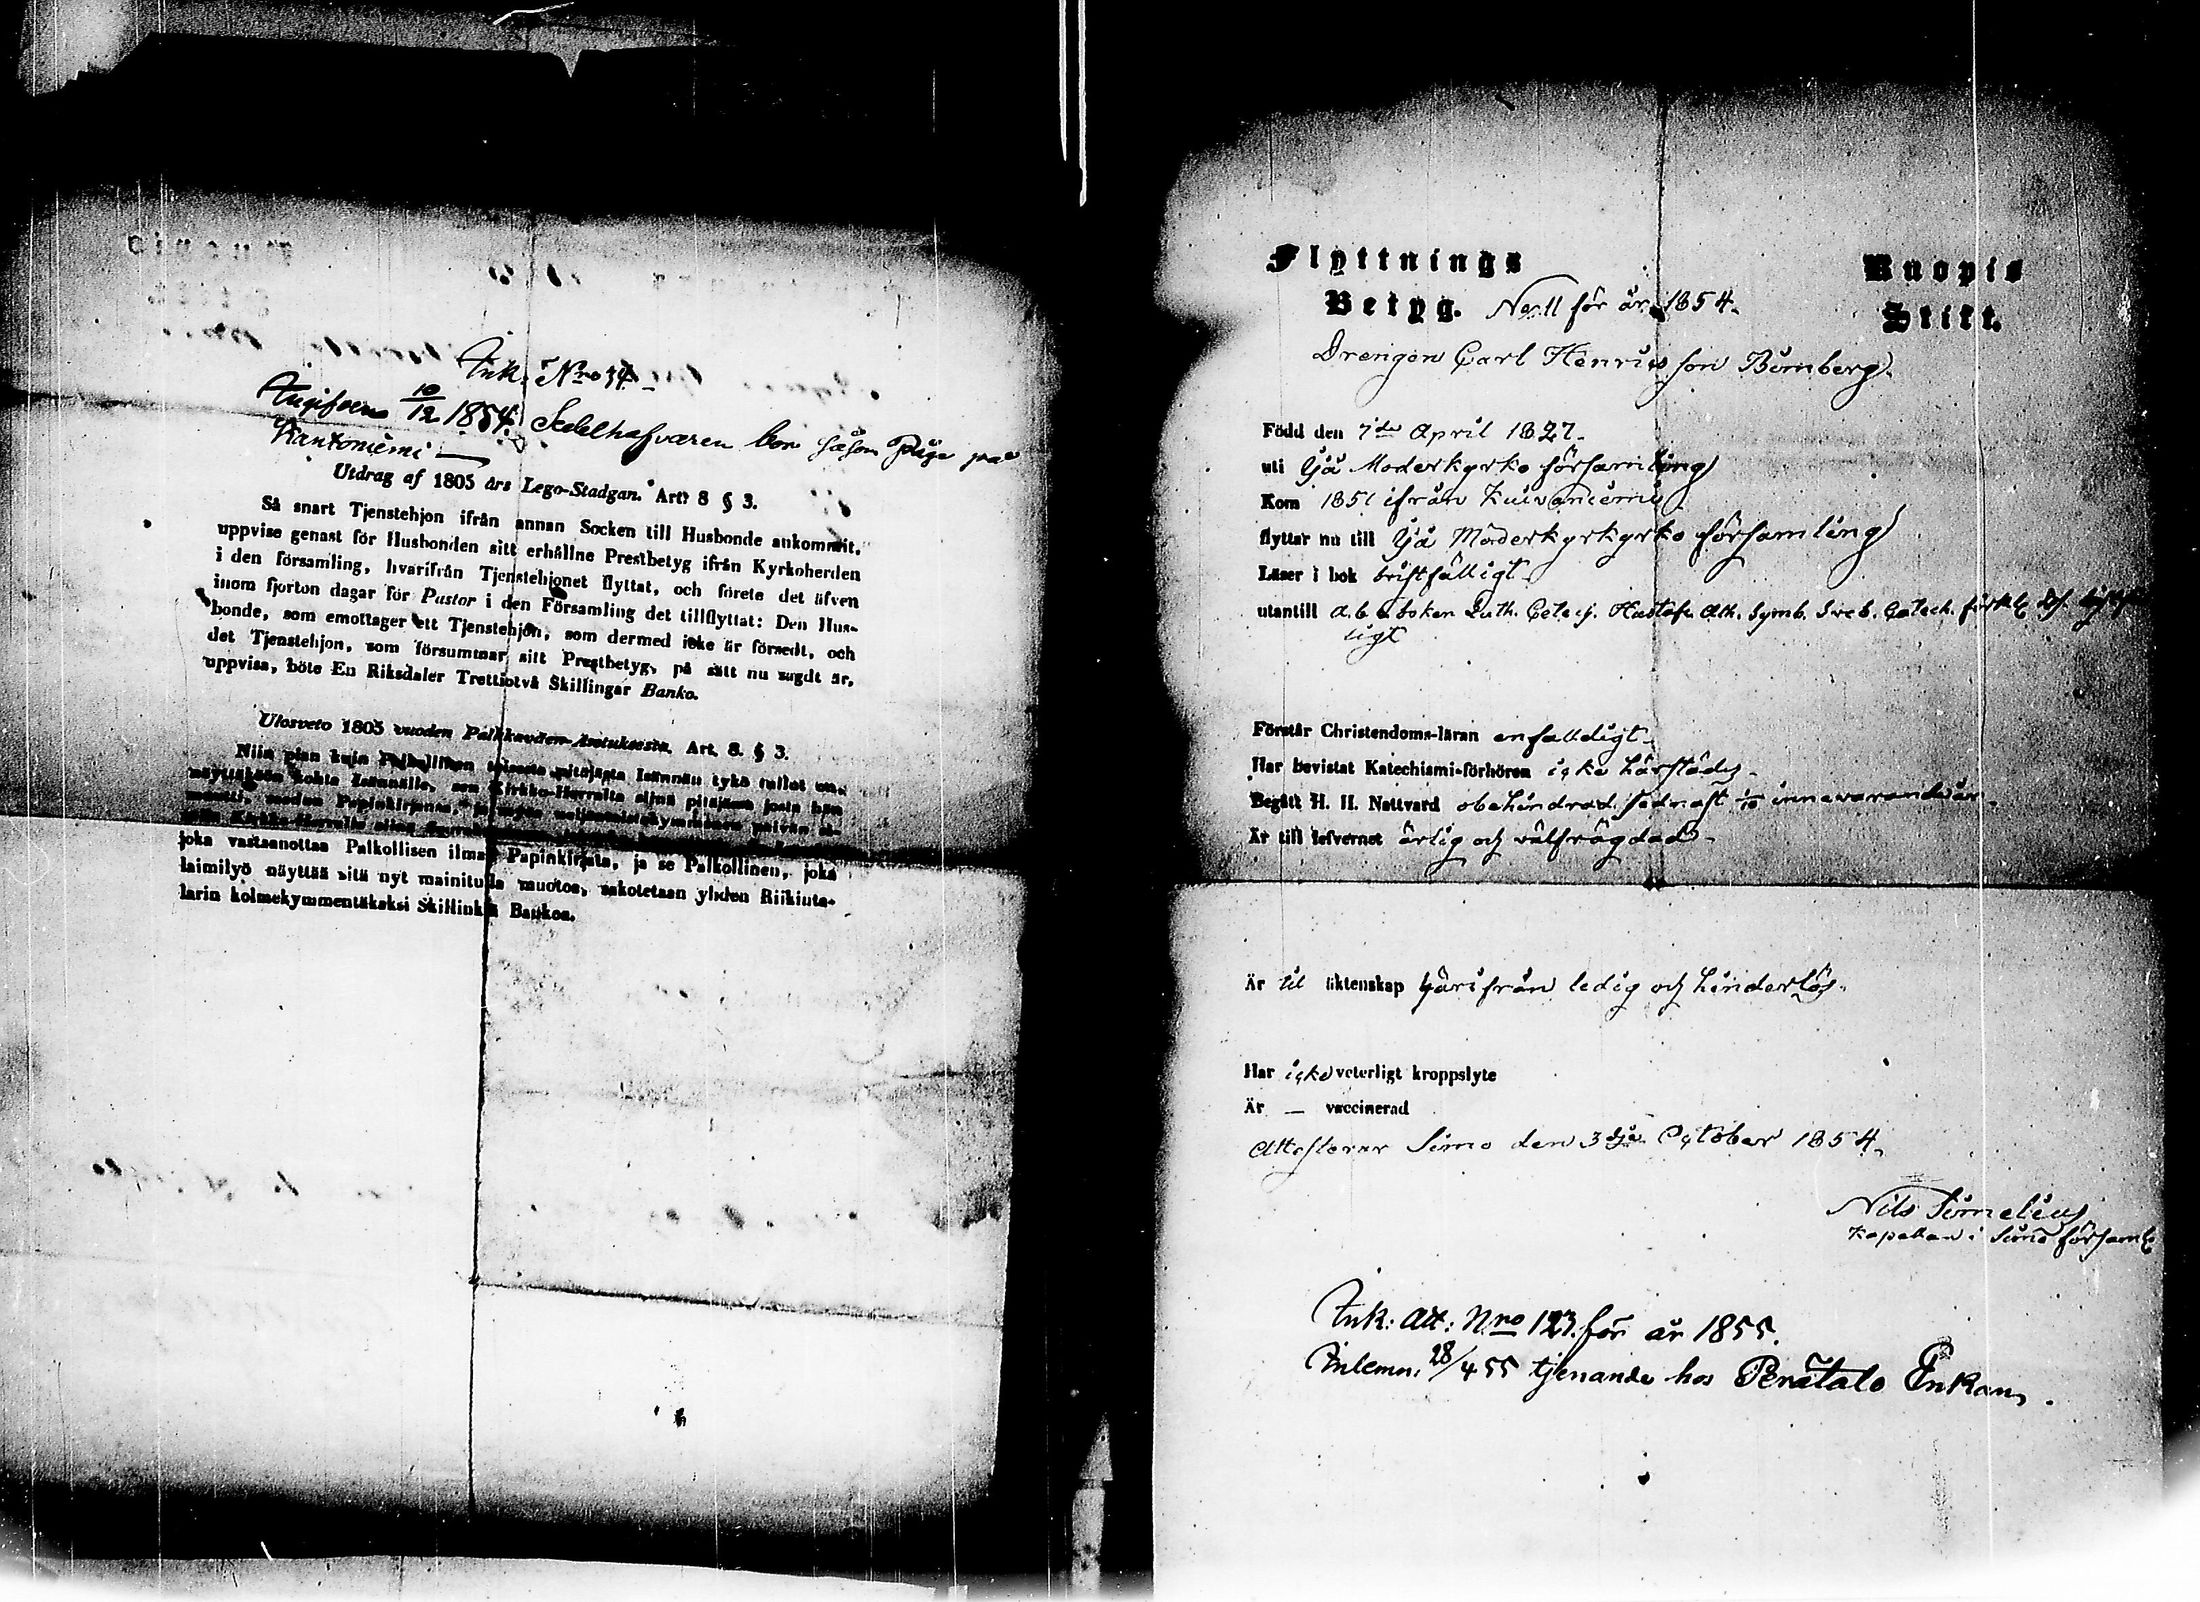 Ink. Nro 34.
Angifven 10/12 1854. Sedelhafvaren bor såsom Piga på
Kantoniemi
Utdrag af 1805 års Lego-Stadgan. Art: 8 § 3.
Så snart Tjenstehjon ifrån annan Socken till Husbonde ankommit,
uppvise genast för Husbonden sitt erhållne Prestbetyg ifrån Kyrkoherden
i den församling, hvarifrån Tjenstehjonet flyttat, och förete det äfven
inom fjorton dagar för Pastor i den Församling det tillflyttat: Den Hus-
bonde, som emottager ett Tjenstehjon, som dermed icke är försedt, och
det Tjenstehjon, som försummar sitt Prestbetyg, på sätt nu sagdt är,
uppvisa, böte En Riksdaler Trettiotvå Skillingar Banko.
Ulosveto 1805 vuoden Palkkaväen-Asetuksesta. Art. 8. § 3.
Niin pian kuin Palkollinen toisesta pitäjästä Isännän tykö tullut on,
näyttäköön kohta Isännälle, sen Kirkko-Herralta siinä pitäjässä josta hän
joka vastaanottaa Palkollisen ilman Papinkirjata, ja se Palkollinen, joka
laimilyö näyttää sitä nyt mainitulla muotoa, sakotetaan yhden Riikinta-
larin kolmekymmentäkaksi Skillinkiä Bankoa.
Flyttnings
Betyg. No 11 för år 1854.
Kuopio
Stift.
Drengen Carl Henricsson Bomberg.
Född den 7de April 1827.
uti Ijå Moderkyrko församling
Kom 1851 ifrån Kuivaniemi
flyttar nu till Ijå Moderkyrkyrko församling
Läser i bok bristfälligt.
utantill a.b.c. boken Luth. Catech. Hustafl. Ath. Symb. Sveb. Catech.
ligt
Förstår Christendoms-läran enfaldigt.
Har bevistat Katechismi-förhören icke härstädes.
Begått H. H. Nattvard obehindrad sednast 1/10 innevarande år.
Är till lefvernet ärlig och välfrägdad.
Är til äktenskap härifrån ledig och hinderlös.
Har icke veterligt kroppslyte
Är — vaccinerad
Attesterar Simo den 3dje October 1854.
Nils
Kapellan i Simo församl.
Ink: Att: Nro 123. för år 1855.
Inlemn. 28/4 55 tjenande hos Perätalo Enkan.